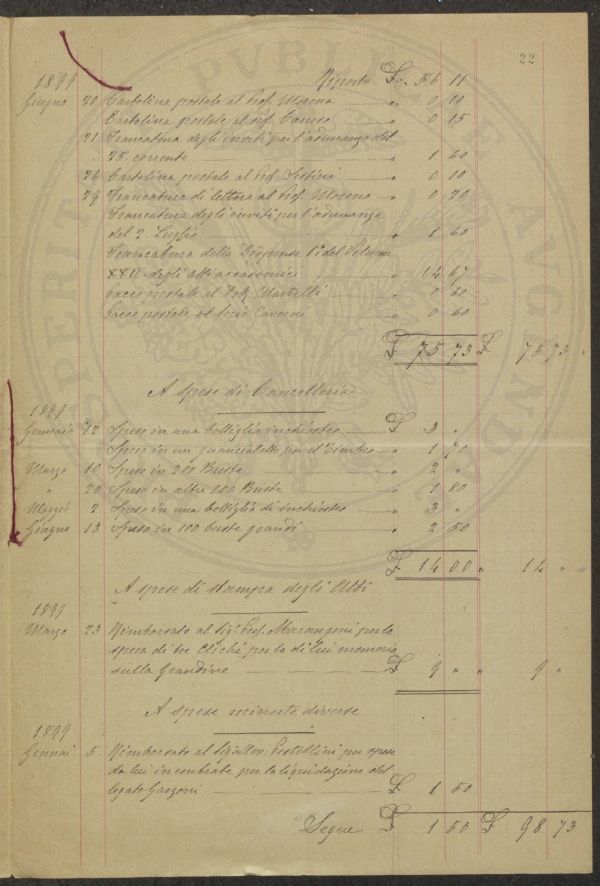 22
1899 Riporto £. 56 11
Giugno 20 Cartolina postale al Prof. Morena — " 0 10
Cartolina postale al Prof. Caruso — " 0 15
21 Francatura degli inviti per l'adunanza del
25 corrente — " 1 60
26 Cartolina postale al Prof. Sestini — " 0 10
29 Francatura di lettera al Prof. Morena — " 0 20
Francatura degli inviti per l'adunanza
del 2 Luglio — " 1 60
Francatura della Dispensa 1ª del Volume
XXII degli atti accademici — " 14 67
Pacco postale al Dott. Martelli — " 0 60
Pacco postale al Socio — " 0 60
£ 75 73 £ 75 73 "
A spese di Cancelleria
1899
Gennaio 12 Spese in una bottiglia inchiostro — £ 3 "
Spese in un per il Timbro — " 1 70
Marzo 10 Spese in 200 Buste — " 2 "
" 20 Spese in altre 100 Buste — " 1 80
Maggio 2 Spese in una bottiglia di inchiostro — " 3 "
Giugno 13 Spese in 100 buste grandi — " 2 50
£ 14 00 " 14 " "
A spese di stampa degli Atti
1899
Marzo 23 Rimborsato al Sigr. Prof. Marangoni per la
spesa di tre Cliché per la di lui memoria
sulla Grandine — £ 9 " " 9 "
A spese minute diverse
1899
Gennai 5 Rimborsato al Sigr. Avv. Pestellini per spese
da lui incontrate per la liquidazione del
legato Garzoni — £ 1 50
Segue £ 1 50 £ 98 73